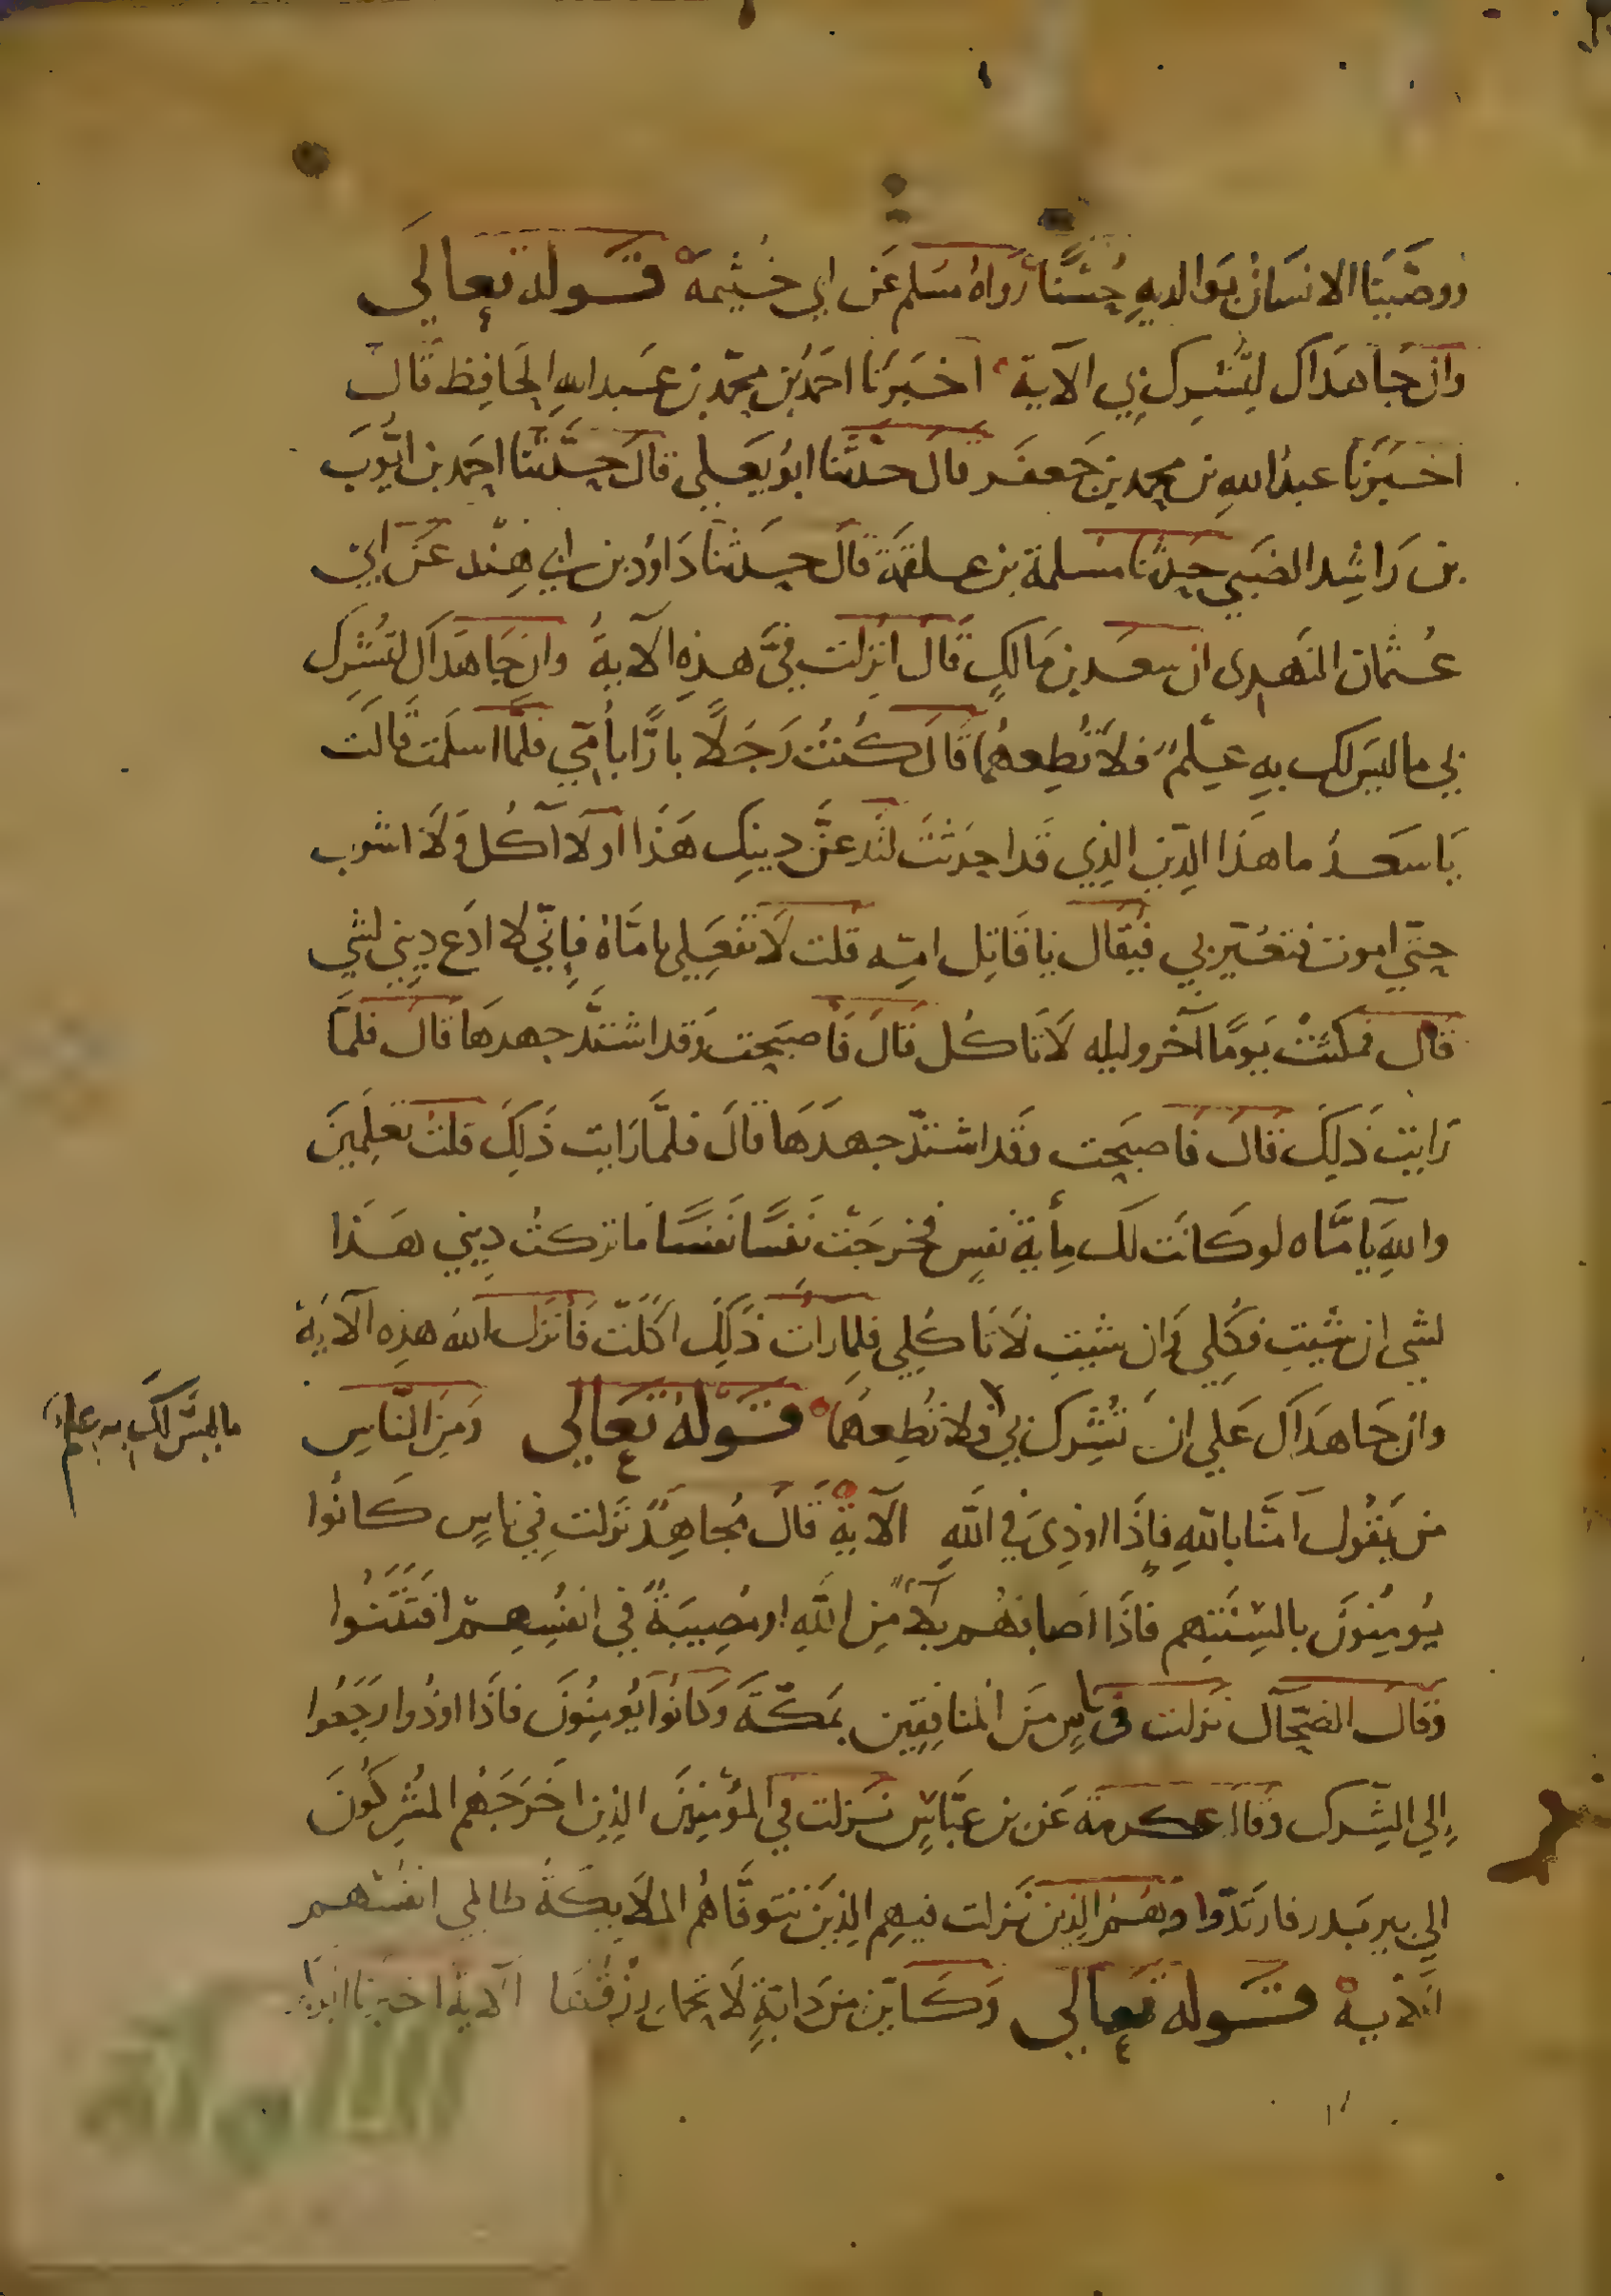 ووصينا الانسان بوالديه حسنا رواه مسلم عن ابي خثيمة قوله تعالى
وان جاهداك لتشرك بي الآية اخبرنا احمد بن محمد بن عبد الله الحافظ قال
اخبرنا عبد الله بن محمد بن جعفر قال حدثنا ابو يعلى قال حدثنا احمد بن ايوب
بن راشد الضبي حدثنا مسلمة بن علقمة قال حدثنا داود بن ابي هند عن ابي
عثمان النهدي ان سعد بن مالك قال انزلت فيّ هذه الآية وان جاهداك لتشرك
بي ما ليس لك به علم فلا تطعهما قال كنت رجلا بارا بأمي فلما اسلمت قالت
يا سعد ما هذا الدين الذي قد احدثت لتدعن دينك هذا او لا آكل ولا اشرب
حتى اموت فتعير بي فيقال يا قاتل امه قلت لا تفعلي يا متاه فإني لا ادع ديني لشي
قال فمكثت يوما آخر وليله لا تاكل قال فاصبحت وقد اشتد جهدها قال فلما
رايت ذلك قال فاصبحت وقد اشتد جهدها قال فلما رايت ذلك قلت تعلمين
والله يا متاه لو كانت لك مأية نفس فخرجت نفسا نفسا ما تركت ديني هذا
لشي ان شيت فكلي وان شيت لا تاكلي فلما رات ذلك اكلت فأنزل الله هذه الآية
وان جاهداك علي ان تشرك بي فلا تطعهما قوله تعالى ومن الناس
ما ليس لك به علم
من يقول آمنا بالله فإذا اوذي في الله الآية قال مجاهد نزلت في ناس كانوا
يومنون بالسنتهم فاذا اصابهم بلآ من الله او مصيبة في انفسهم افتتنوا
وقال الضحاك نزلت في ناس من المنافقين بمكة وكانوا يومنون فاذا اوذوا رجعوا
إلي الشرك وقال عكرمة عن بن عباس نزلت في المؤمنين الذين اخرجهم المشركون
الي بدر فارتدوا وهم الذين نزلت فيهم الذين تتوفاهم الملايكة ظالمي انفسهم
الآية قوله تعالى وكاين من دابة لا تحمل رزقها الآية اخبرنا ابو